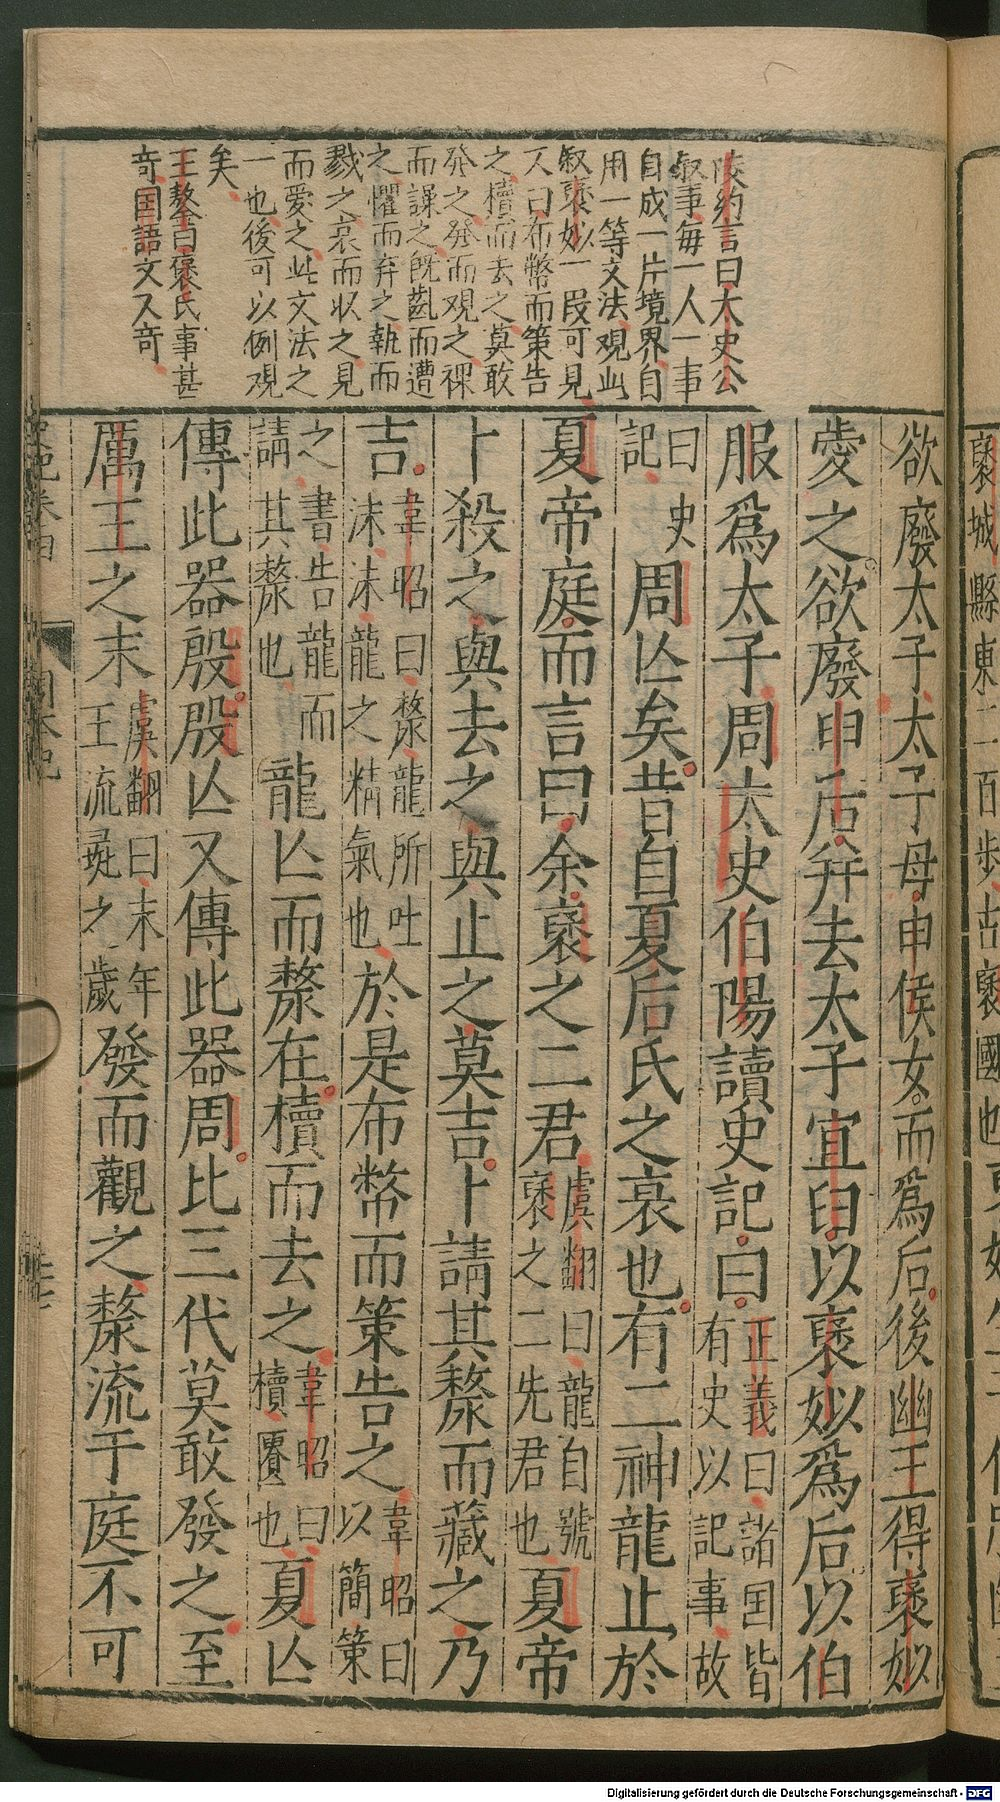 褒城縣東二百步古褒國也
凌約言曰太史公
叙事每一人一事
自成一片境界自
用一等文法観此
叙褒姒一段可見
又曰布幣而策告
之櫝而去之莫敢
發之發而観之祼
而譟之既齔而遭
之懼而弃之執而
戮之哀而収之見
而爱之此文法之
一也後可以例观
矣
王鏊曰褒氏事甚
奇国語文又奇
欲廢太子太子母申侯女而爲后後幽王得褒姒
愛之欲廢申后并去太子宜臼以褒姒爲后以伯
服爲太子周太史伯陽讀史記曰正義曰諸国皆有史以記事故
曰史記周亾矣昔自夏后氏之衰也有二神龍止於
夏帝庭而言曰余褒之二君虞翻曰龍自號褒之二先君也夏帝
卜殺之與去之與止之莫吉卜請其漦而藏之乃
吉韋昭曰漦龍所吐沫沫龍之精氣也於是布幣而策告之韋昭曰以簡策
之書告龍而請其漦也龍亾而漦在櫝而去之韋昭曰櫝匱也夏亾
傳此器殷殷亾又傳此器周比三代莫敢發之至
厲王之末虞翻曰末年王流彘之歲發而觀之漦流于庭不可
史記卷四 周本紀
Digitalisierung gefördert durch die Deutsche Forschungsgemeinschaft - DFG